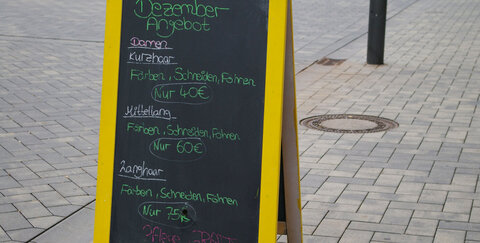 Dezember-
Angebot
Damen
Kurzhaar
Färben, Schneiden, Föhnen
Nur 40€
Mittellang
Färben, Schneiden, Föhnen
Nur 60€
Langhaar
Färben, Schneiden, Föhnen
Nur 75€